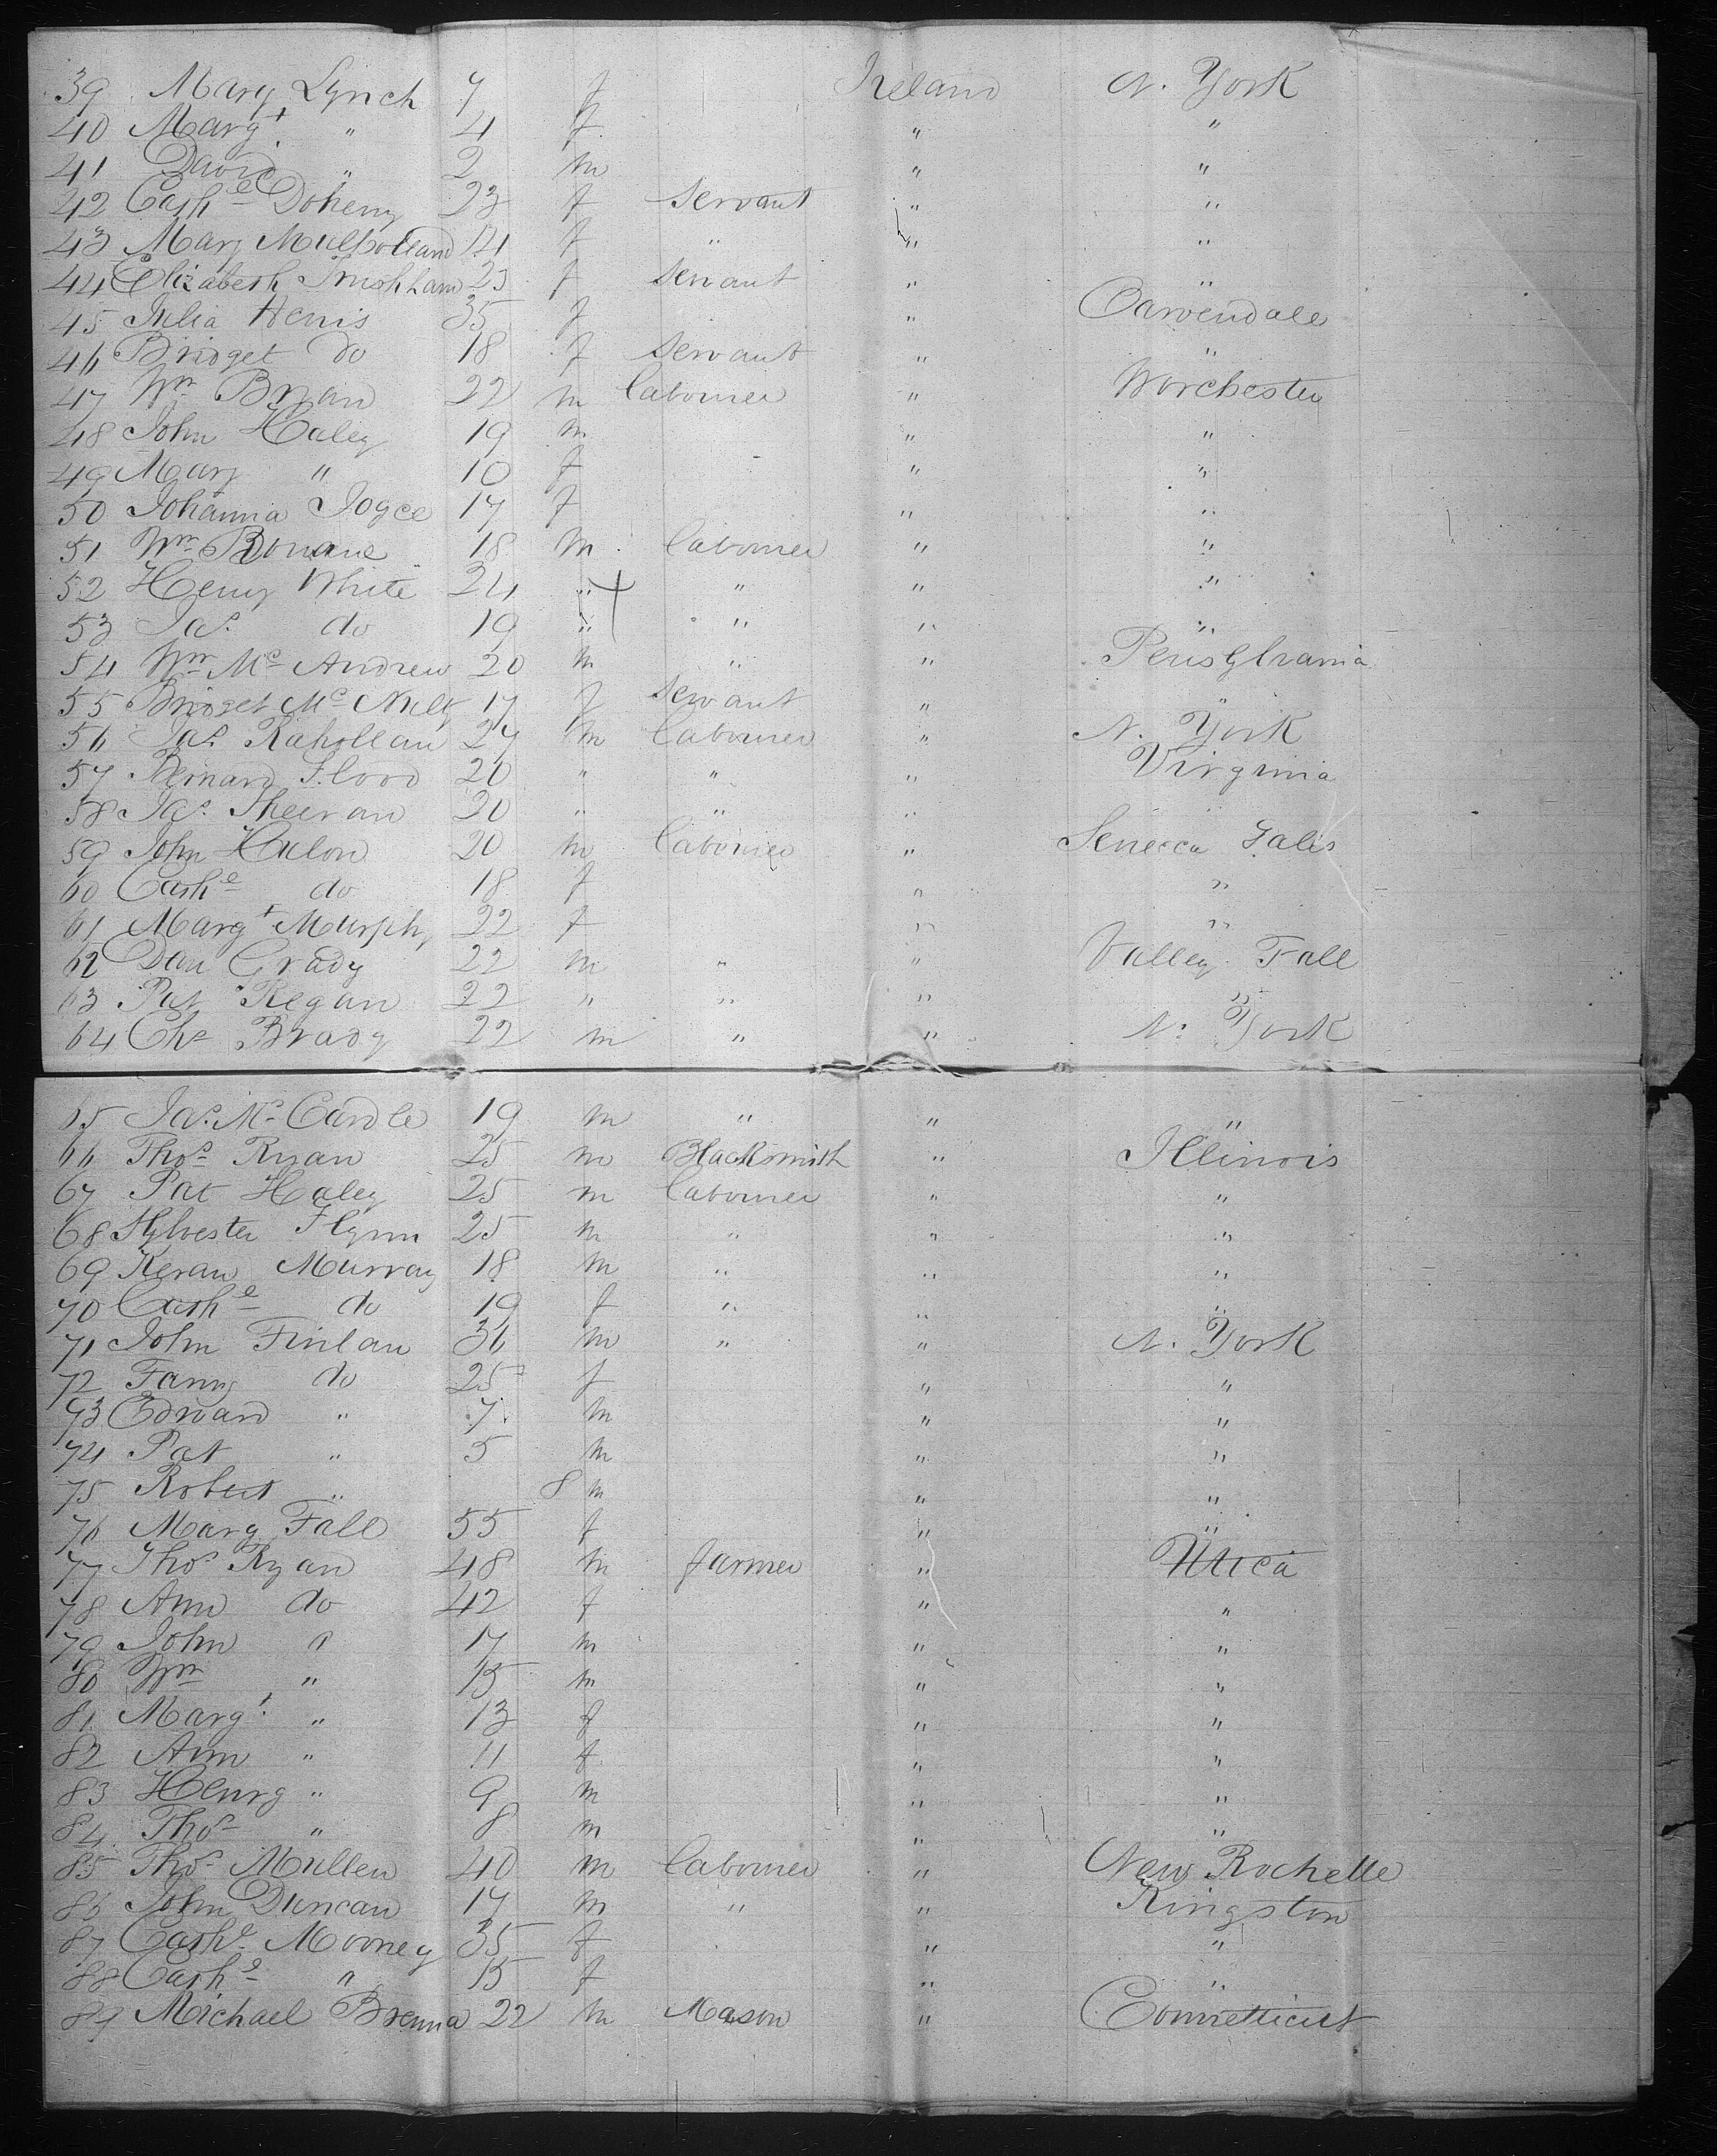 39 Mary Lynch 7 f Ireland N. York
40 Margt " 4 f " "
41 David " 2 m " "
42 Cathe Doherty 23 f Servant " "
43 Mary Mulholland 14 f " " "
44 Elizabeth 23 f Servant " "
45 Julia Henis 35 f " Carvendale
46 Bridget do 18 f Servant " "
47 Wm Bryan 22 m labourer " Worchester
48 John Haley 19 m " "
49 Mary " 10 f " "
50 Johanna Joyce 17 f " "
51 Wm Bonane 18 m labourer " "
52 Henry White 24 " " " "
53 Jas do 19 " " " "
54 Wm Mc Andrew 20 m " " Pensylvania
55 Bridget Mc Nulty 17 f Servant " "
56 Jas 27 m labourer " N. York
57 Bernard Flood 20 " " " Virginia
58 Jas Sheeran 20 " " " "
59 John Hulon 20 m labourer " Senecca Falls
60 Cathe do 18 f " "
61 Margt Murphy 22 f " "
62 Dan Grady 22 m " " Valley Fall
63 Pat Regan 22 " " " "
64 Chs Brady 22 m " " N. York
65 Jas Mc Cardle 19 m " " "
66 Thos Ryan 25 m Blacksmith " Illinois
67 Pat Haley 25 m labourer " "
68 Sylvester Flynn 25 m " " "
69 Keran Murray 18 m " " "
70 Cathe do 19 f " " "
71 John Finlan 36 m " " N. York
72 Fanny do 25 f " "
73 Edward " 7 m " "
74 Pat " 5 m " "
75 Robert " 8 m " "
76 Mary Fall 55 f " "
77 Thos Ryan 48 m farmer " Utica
78 Ann do 42 f " "
79 John " 17 m " "
80 Wm " 15 m " "
81 Margt " 13 f " "
82 Ann " 11 f " "
83 Henry " 9 m " "
84 Thos " 8 m " "
85 Thos Mullen 40 m labourer " New Rochelle
86 John Duncan 17 m " " Kingston
87 Cathe Mooney 35 f " "
88 Cathe " 15 f " "
89 Michael Brenna 22 m Mason " Connetticut